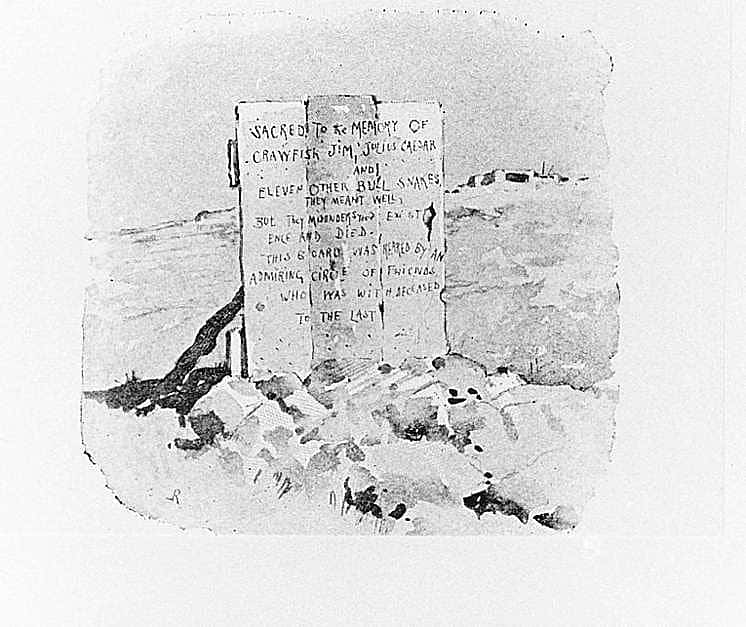 SACRED TO the MEMORY OF
CRAWFISH JIM, JULIUS CAESAR
AND
ELEVEN OTHER BULL SNAKES,
THEY MEANT WELL,
BUT THEY MISUNDERSTOOD EXIST
ENCE AND DIED.
THIS BOARD WAS REARED BY AN
ADMIRING CIRCLE OF FRIENDS
WHO WAS WITH DECEASED
TO THE LAST
R